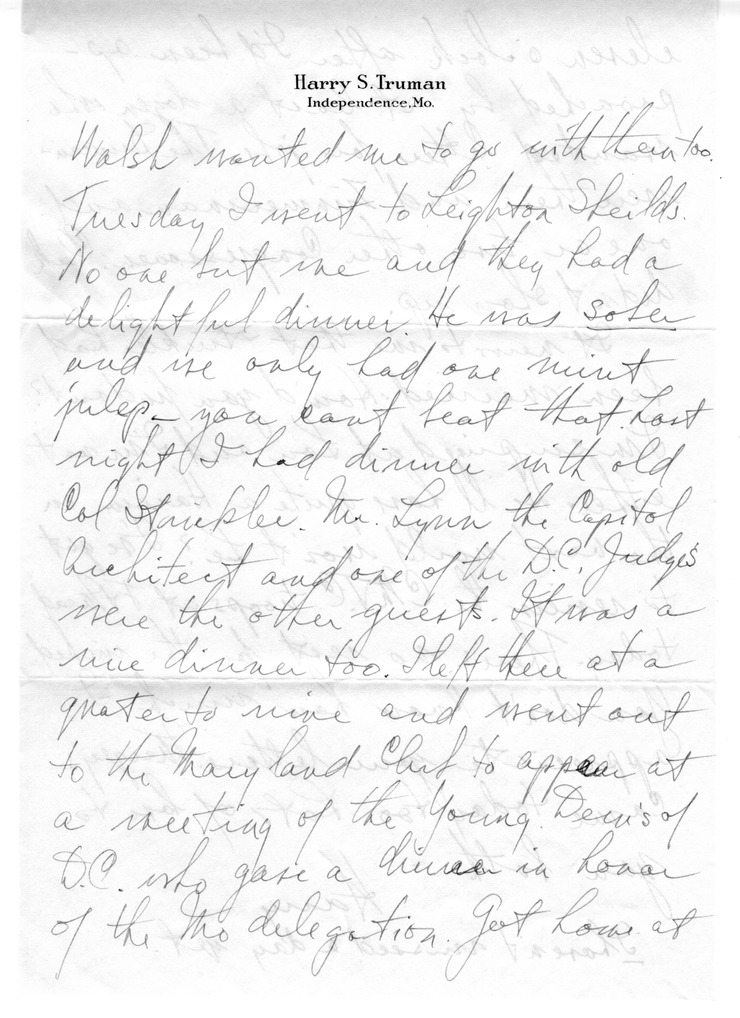 Harry S. Truman
Independence, Mo.
Walsh wanted me to go with them too.
Tuesday I went to Leighton Sheilds.
No one but me and they had a
delightful dinner. He was sober
and we only had one mint
julep - you cant beat that. Last
night I had dinner with old
Col Strickler. Mr. Lynn the Capitol
Architect and one of the D.C. Judges
were the other guests. It was a
nice dinner too. I left there at a
quater to nine and went out
to the Maryland Club to appear at
a meeting of the Young Dem's of
D.C. who gave a dinner in honor
of the Mo delegation. Got home at